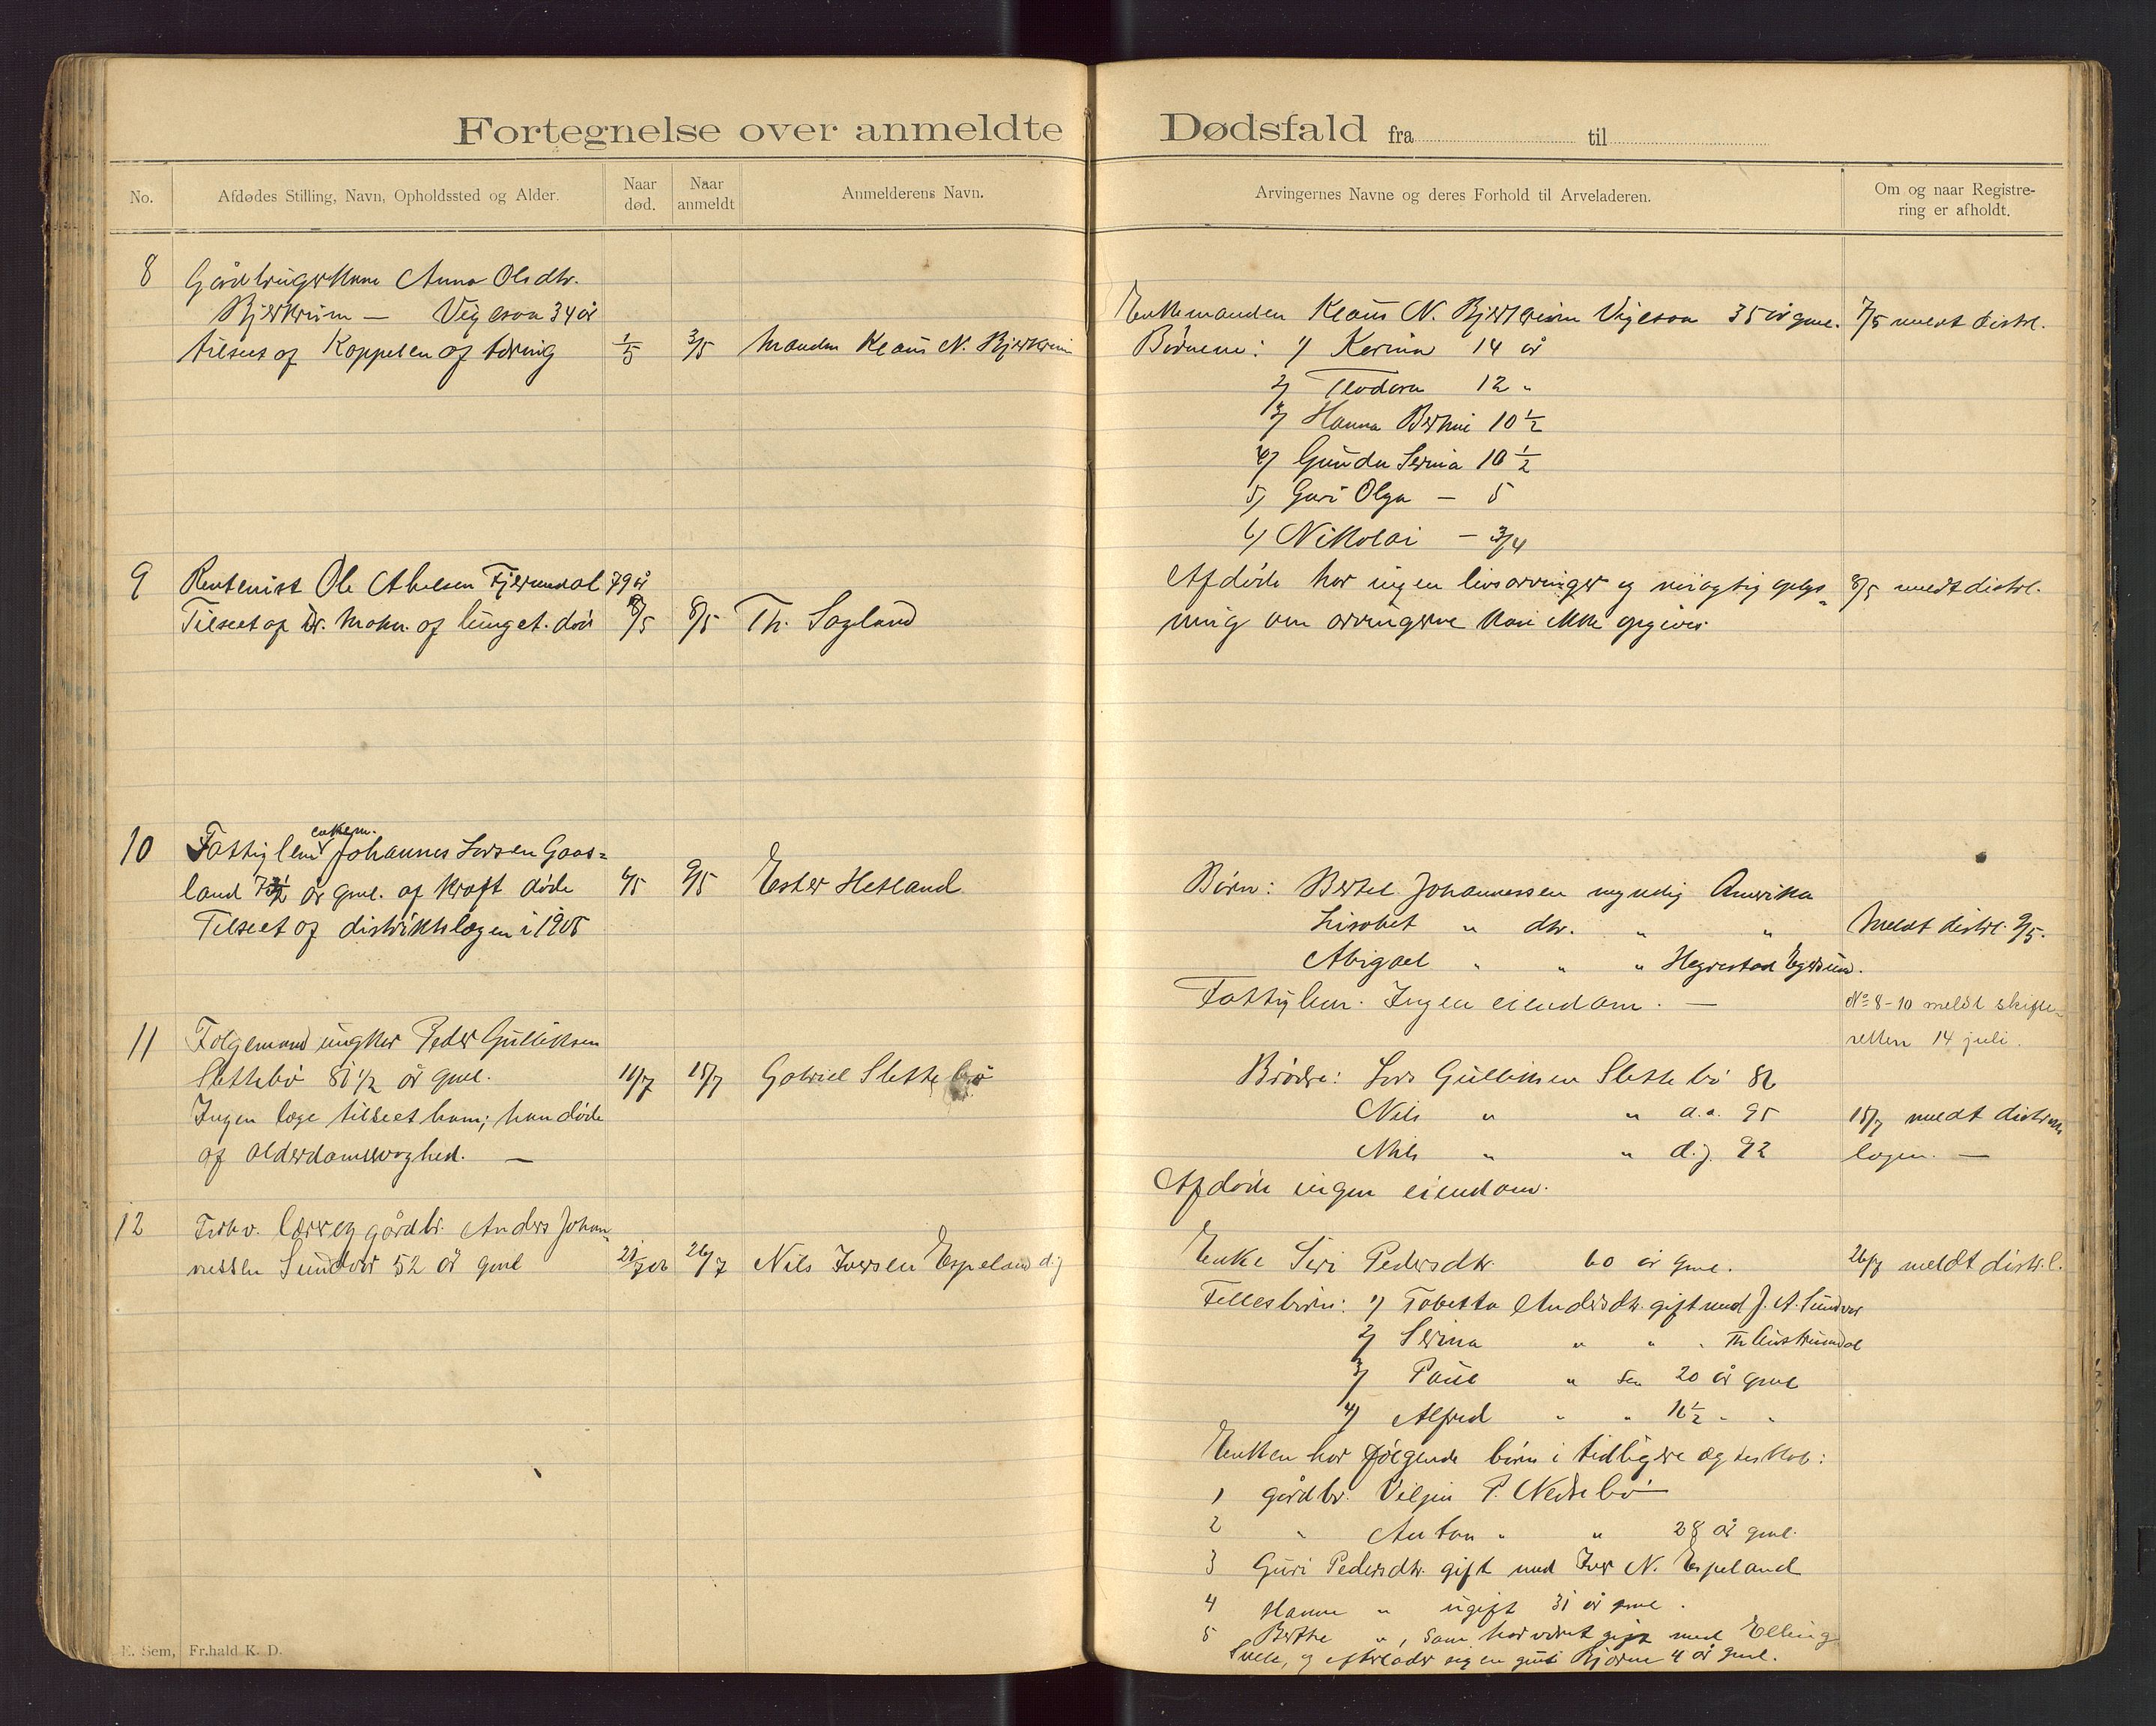 Fortegnelse over anmeldte Dødsfald fra til
No.
Afdødes Stilling, Navn, Opholdssted og Alder.
Naar død.
Naar anmeldt
Anmelderens Navn.
Arvingernes Navne og deres Forhold til Arveladeren.
Om og naar Registre-
ring er afholdt.
8
Gårdbrugerkone Anna Olsdtr.
Bjerkreim — Vigesaa 34 år
tilseet af Koppelen af tæring
1/5
3/5
Manden Klaus N. Bjerkreim
Enkemanden Klaus N. Bjerkreim Vigesaa 35 år gml.
Børnene: 1) Kerina 14 år
2) Teodora 12 "
3) Hanna Bertine 10 1/2
4) Gunda Serina 10 1/2
5) Guri Olga — 5
6) Nikolai — 3/4
7/5 meldt distrl.
9
Rentenist Ole Abelsen Fjermedal 79 år
Tilseet af Dr. Mohn. af lunget. død
8/5
8/5
Th. Sagland
Afdøde har ingen livsarvinger og nøiagtig oplys
ning om arvingerne kan ikke opgives
8/5 meldt distrl.
10
enkem.
Fattiglem Johannes Larsen Gaas=
land 73 1/2 år gml. af kræft døde
Tilseet af distriktslægen i 1905
6/5
9/5
Ester Hetland
Børn: Bertel Johannessen myndig Amerika
Lisabet " dtr. " "
Abigael " " " Hegrestad Egersund.
Fattiglem. Ingen eiendom. —
Meldt distrl. 9/5.
No 8-10 meldt skifte-
retten 14 juli.
11
Folgemand ungkar Peder Gulliksen
Slettebø 81 1/2 år gml.
Ingen læge tilseet ham; han døde
af alderdomssvaghed. —
11/7
15/7
Gabriel Slettebø
Brødre: Lars Gulliksen Slettebø 86
Nils " " d.æ. 95
Nils " " d.y. 92
Afdøde ingen eiendom.
15/7 meldt distrikts
lægen. —
12
Forhv. lærer og gårdbr. Anders Johan-
nessen Sundvor 52 år gml
21/7 06
26/7
Nils Iversen Espeland d.y
Enke Siri Pedersdtr. 60 år gml.
Fellesbørn: 1) Tabetta Andersdtr. gift med J. A. Sundvor
2) Serina " " " Th Austrumdal
3) Paul " sen 20 år gml
4) Alfred " " 16 1/2 " "
Enken har følgende børn i tidligere ægteskab:
1 gårdbr. Vilhjem P. Nedrebø
2 " Anton " " 28 år gml.
3 Guri Pedersdtr. gift med Iver N. Espeland
4 Hanne " ugift 31 år gml.
5 Berthe ", som har været gift med Elling
, og efterlader sig en gut Bjarne 4 år gml.
26/7 meldt distr.l.
E. Sem, Fr.hald K. D.